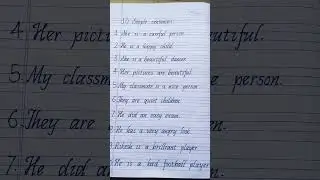 10 Simple sentences
1. She is a careful person.
2. He is a happy child.
3. She is a beautiful dancer.
4. Her pictures are beautiful.
5. My classmate is a nice person.
6. They are quiet children.
7. He did an easy exam.
8. He has a very angry look.
9. is a brilliant player.
10. He is a bad football player
4. Her pict
5. My classm
6. They are
7. He did a
iful.
e person.
n.